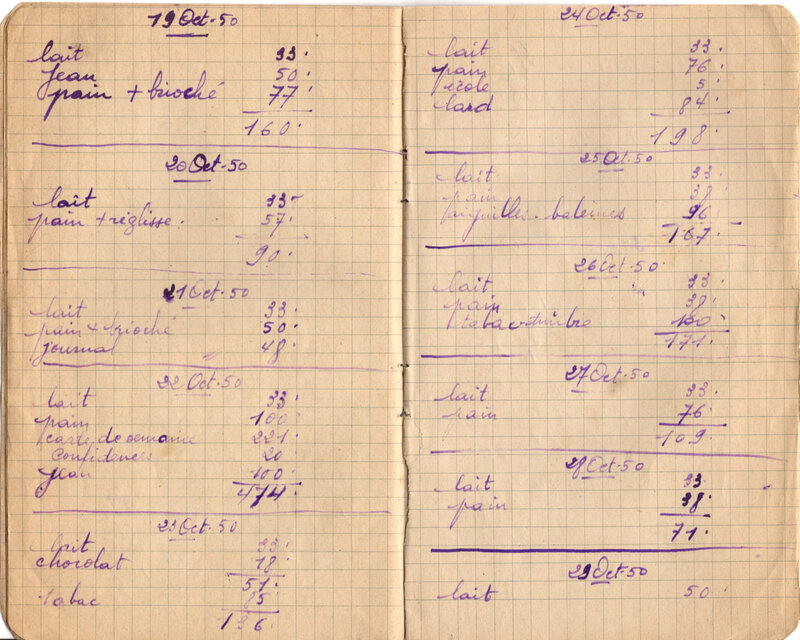 19 Oct-50
lait 33.
Jean 50.
pain + brioché 77.
160.
20 Oct-50
lait 33-
pain + réglisse. 57.
90.
21 Oct-50
lait 33.
pain + brioché 50.
journal 48.
22 Oct-50
lait 33.
pain 100
carte de semaine 221
Confidences 20
Jean 100.
474.
23 Oct-50
lait 33.
chocolat 18.
51.
tabac 85.
136.
24 Oct-50
lait 33.
pain 76.
école 5.
lard 84.
198.
25 Oct-50
lait 33.
pain 38.
aiguilles-baleines 96.
167.
26 Oct-50.
lait 33.
pain 38.
tabac-timbre 100.
171.
27 Oct-50
lait 33.
pain 76.
109.
28 Oct-50
lait 33
pain 38.
71.
29 Oct-50
lait 50.